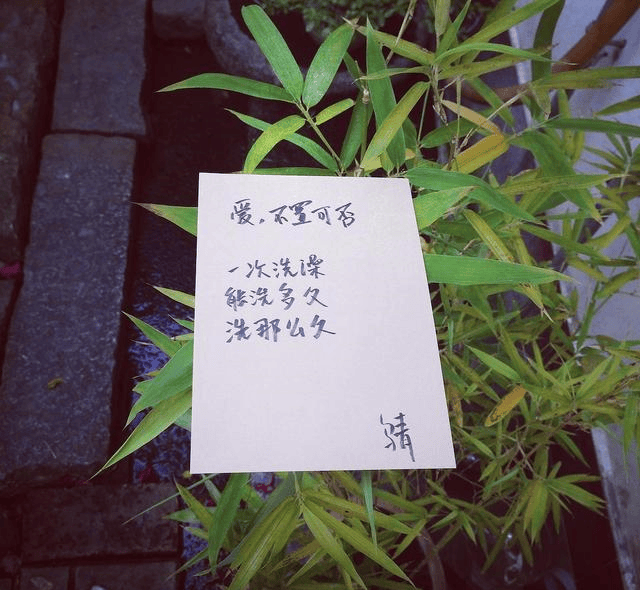 爱，不置可否
一次洗澡
能洗多久
洗那么久